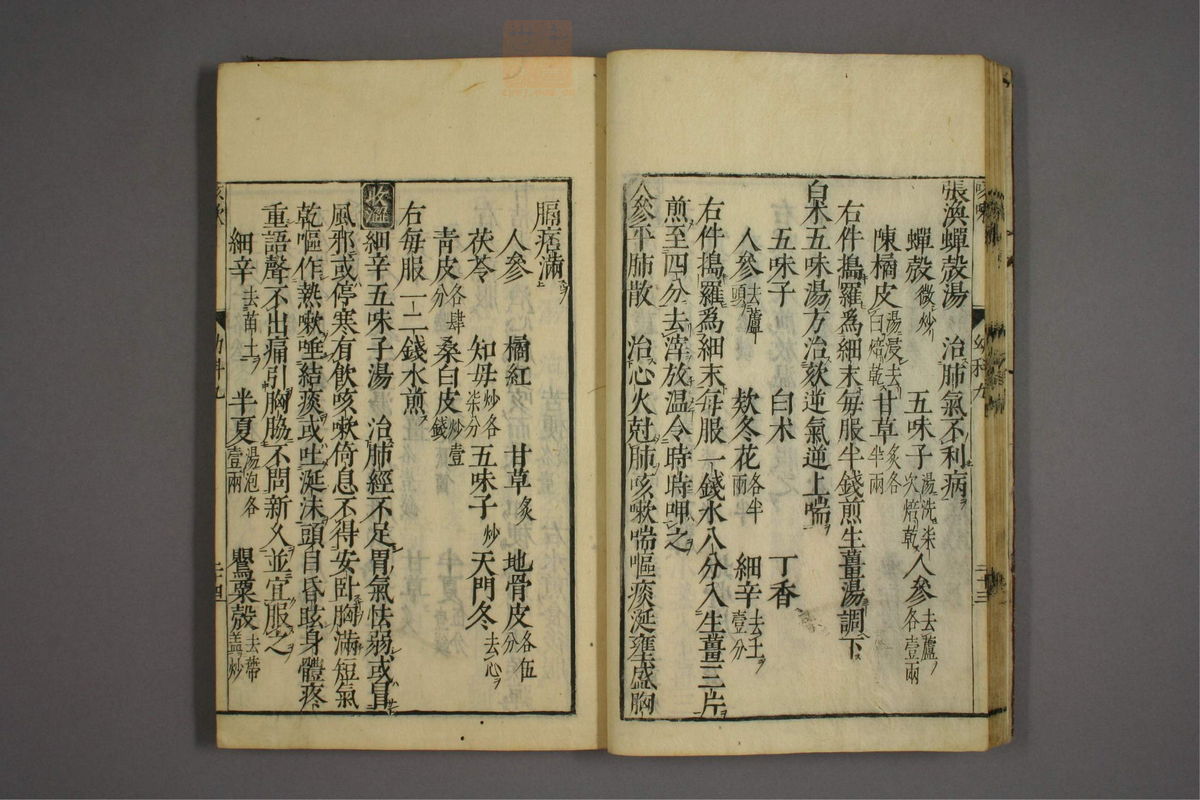 張渙蟬殻湯　治肺氣不利病
蟬殻微炒　五味子湯洗柒次焙乾　人參去蘆各壹兩
陳橘皮湯浸去白焙乾　甘草炙各半兩
右件搗羅為細末每服半錢煎生薑湯調下
白朮五味湯方治欬逆氣逆上喘
五味子　白朮　丁香
人參去蘆頭　欵冬花各半兩　細辛去土壹分
右件搗羅為細末每服一錢水八分入生薑三片
煎至四分去滓放温令時時呷之
人參平肺散　治心火尅肺咳嗽喘嘔痰涎壅盛胸
膈痞滿
人參　橘紅　甘草炙　地骨皮各伍分
茯苓　知母炒各柒分　五味子炒　天門冬去心
青皮各肆分　桑白皮炒壹錢
右每服一二錢水煎
收澁　細辛五味子湯　治肺經不足胃氣怯弱或冐
風邪或停寒有飲咳嗽倚息不得安卧胸滿短氣
乾嘔作熱嗽唾結痰或吐涎沫頭目昏眩身體疼
重語聲不出痛引胸脇不問新久並宜服之
細辛去苗土　半夏湯泡各壹兩　罌粟殻去蒂蓋炒
幼科九
二十三
二十四